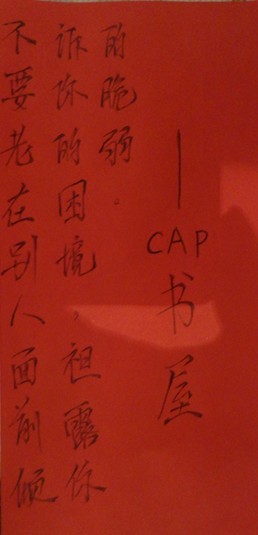 不要老在别人面前倾
诉你的困境，祖露你
的脆弱.
—CAP书屋